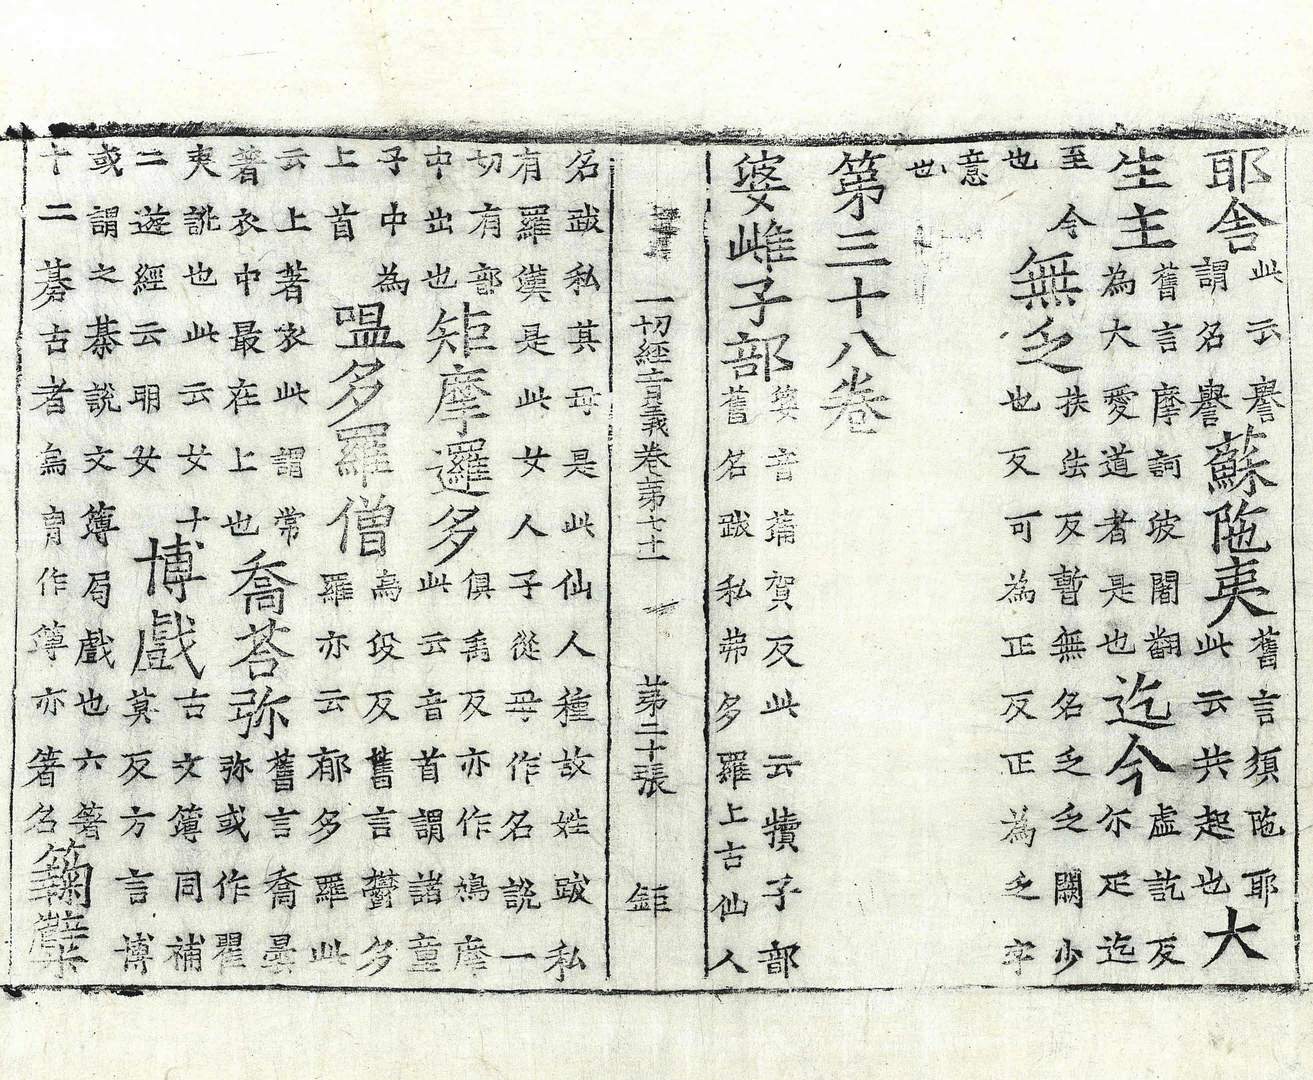 耶舍此云譽謂名譽蘇陁夷舊言須陁耶此云共起也大
生主舊言摩訶波闍翻為大愛道者是也迄今虛訖反尔疋迄
至今也無乏扶法反暫無名乏乏闕少也反可為正反正為乏字
意也
第三十八卷
婆雌子部婆音蒲賀反此云犢子部舊名跋私弗多羅上古仙人
一切經音義卷第七十一 第二十張 鉅
名跋私其母是此仙人種故姓跋私有羅漢是此女人子從母作名說一
切有部中出也矩摩邏多俱禹反亦作鳩摩此云音首謂諸童
子中為上首嗢多羅僧烏伇反舊言欝多羅亦云郁多羅此
云上著衣此謂常著衣中最在上也喬荅弥舊言喬曇弥或作瞿
夷訛也此云女十二遊經云明女博戲古文簿同補莫反方言博
或謂之棊說文簿局戲也六箸十二棊古者烏曹作簿亦箸名麴糵